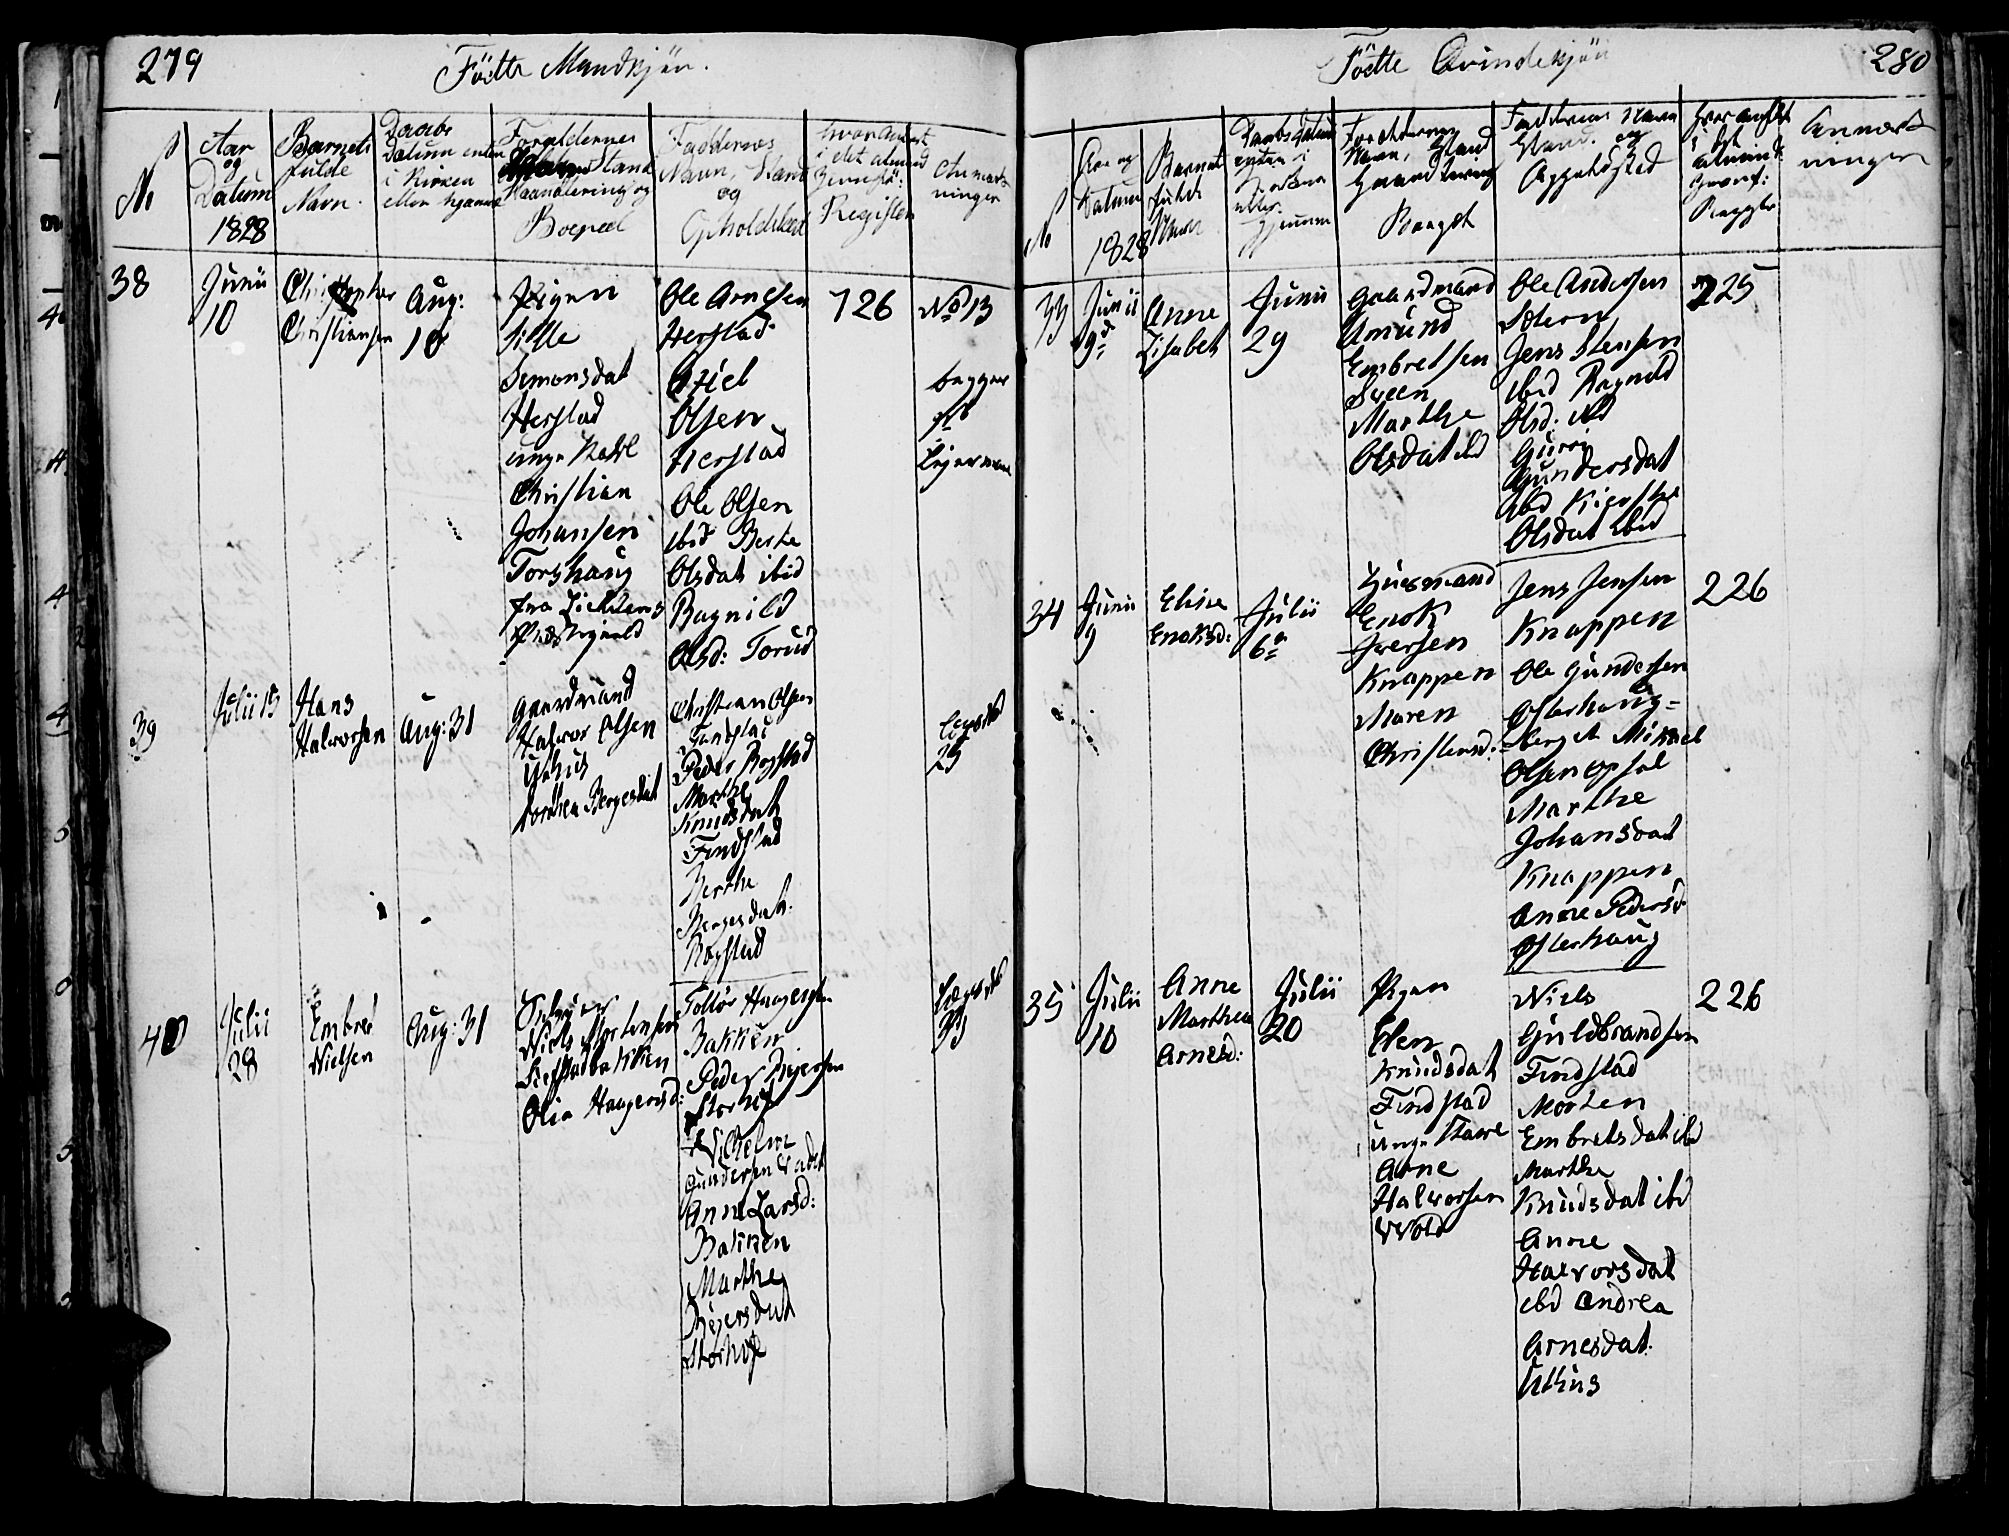 279
Födte Mandkjön.
No
Aar
og
Datum
1828
Barnets
fulde
Navn.
Daabs
Datum enten
i Kirken
eller hjemme
Forældernes
Stand
Haandtering og
Boepæl
Faddernes
Navn, Stand
og
Opholdsted
hvor anført
i det almind
Register
Anmærk
ninger
38
Junii
10
Christopher
Christiansen
Aug:
10
Pigen
Sille
Simonsdat
Herstad
unge Karl
Christian
Johansen
Torshaug
fra
Ole Arnesen
Herstad
Olsen
Herstad
Ole Olsen
ibid Berte
Olsdat ibid
Ragnild
Olsd: Torud
126
No 13
begges
Leiermaal
39
Julii 15
Hans
Halvorsen
Aug: 31
Gaardmand
Halvor Olsen
Uthus
Dorthea Børgesdat
Christian Olsen
Findstad
Peder Rogstad
Marthe
Knudsdat
Findstad
Berthe
Børgesdat.
Rogstad
25
40
Julii
28
Embret
Nielsen
Aug: 31
Niels Mortensen
Olia Haagensd:
Bakken
Peder
Storhof
Vilhelm
Gundersen
Anne Larsd:
Bakken
Marthe
Storhof
280
Födte Qvindekjön
No
Aar og
Datum
1828
Barnets
fulde
Navn
Daabsdatum
enten i
Kirken
eller
hjemme
Forældernes
Navn, Stand
Haandtering
Boepæl
Faddernes Navn
Stand. og
Opholdsted
Hvor anført
i det
almind:
Anmærk
ninger
33
Junii
9d
Anne
Lisabet
Junii
29
Gaardmand
Amund
Embretsen
Sveen
Marthe
Olsdat ibd
Ole Andersen
Jens Stensen
ibid Ragnild
Olsd: ibd
Gurri
Gundersdat
ibd Kierstie
Olsdat ibid
225
34
Junii
9
Elise
Enoksd:
Julii
6te
Huusmand
Enok
Iversen
Knappen
Maren
Christensd:
Jens Jensen
Knappen
Ole Gundersen
Osterhaug=
berget Mikael
Olsen Opsal
Marthe
Johansdat
Knappen
Anne Pedersd
Osterhaug
226
35
Julii
10
Anne
Marthea
Arnesd:
Julii
20
Pigen
Elen
Knudsdat
Findstad
unge Karl
Arne
Halvorsen
Wold
Niels
Guldbrandsen
Findstad
Morten
Embretsdat ibd
Marthe
Knudsdat ibd
Anne
Halvorsdat
ibd Andrea
Arnesdat
Uthus
226